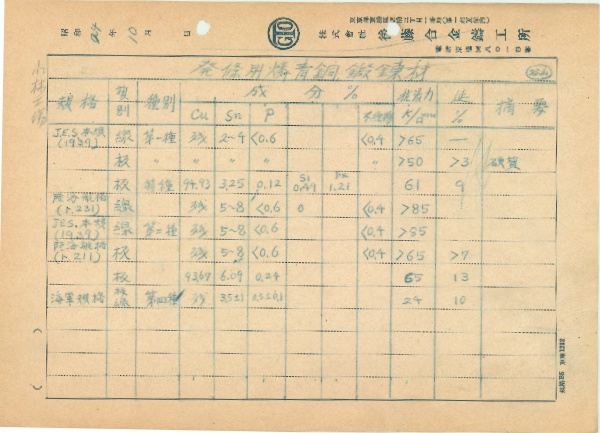 昭和 24年 10月 日
株式会社 後藤合金鋳工所
発條用燐青銅鍛錬材
規格 種別 種別 成分% 抗張力 伸 摘要
Cu Sn P 不純物 K/□mm %
J.E.S.本規(1929) 線 第一種 残 2~4 <0.6 <0.4 >65 —
板 〃 〃 〃 〃 >50 >3 硬質
板 特種 94.93 3.25 0.12 Si 0.49 Fe 1.21 61 9
陸海航格(ト.231) 線 残 5~8 <0.6 0 <0.4 >85
J.E.S.本規(1929) 線 第二種 残 5~8 <0.6 <0.4 >85
陸海航格(ト.211) 板 残 5~8 <0.6 <0.4 >65 >7
板 93.67 6.09 0.24 65 13
海軍規格 板線 第四種 残 3.5±1 24 10